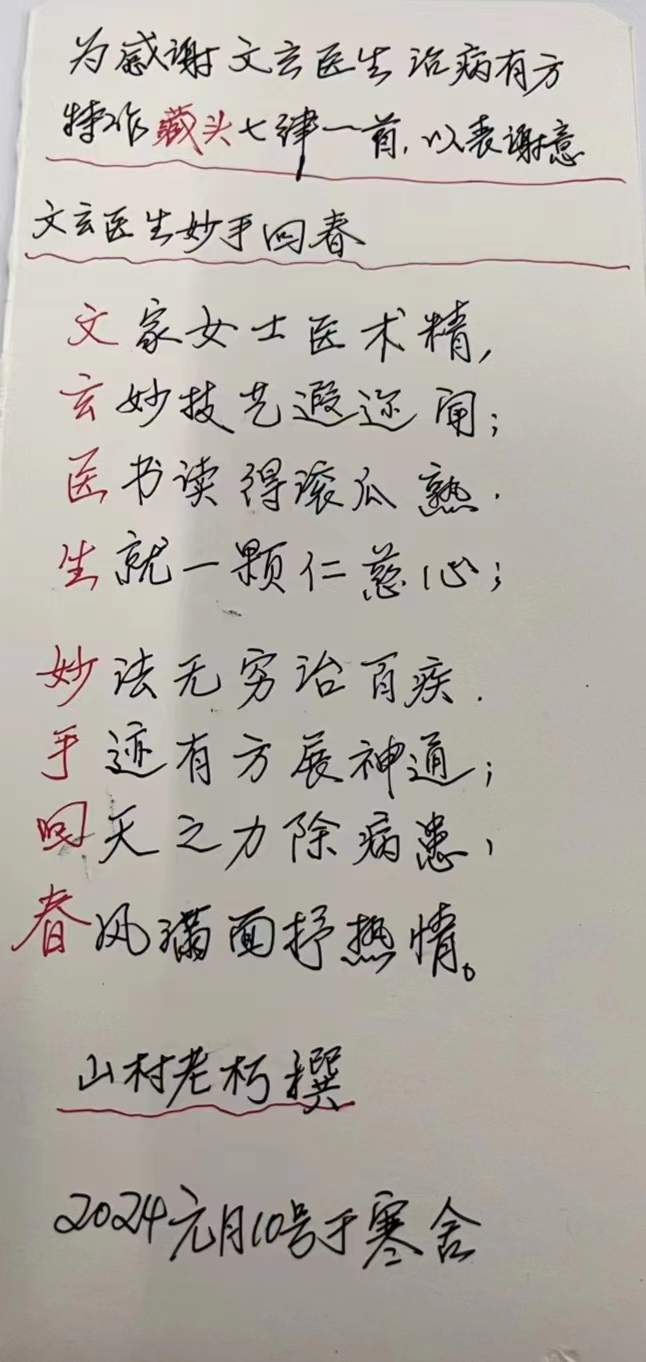 为感谢文玄医生治病有方
特作藏头七律一首,以表谢意
文玄医生妙手回春
文家女士医术精,
玄妙技艺遐迩闻;
医书读得滚瓜熟.
生就一颗仁慈心;
妙法无穷治百疾.
手迹有方展神通;
回天之力除病患,
春风满面抒热情。
山村老朽撰
2024元月10号于寒舍